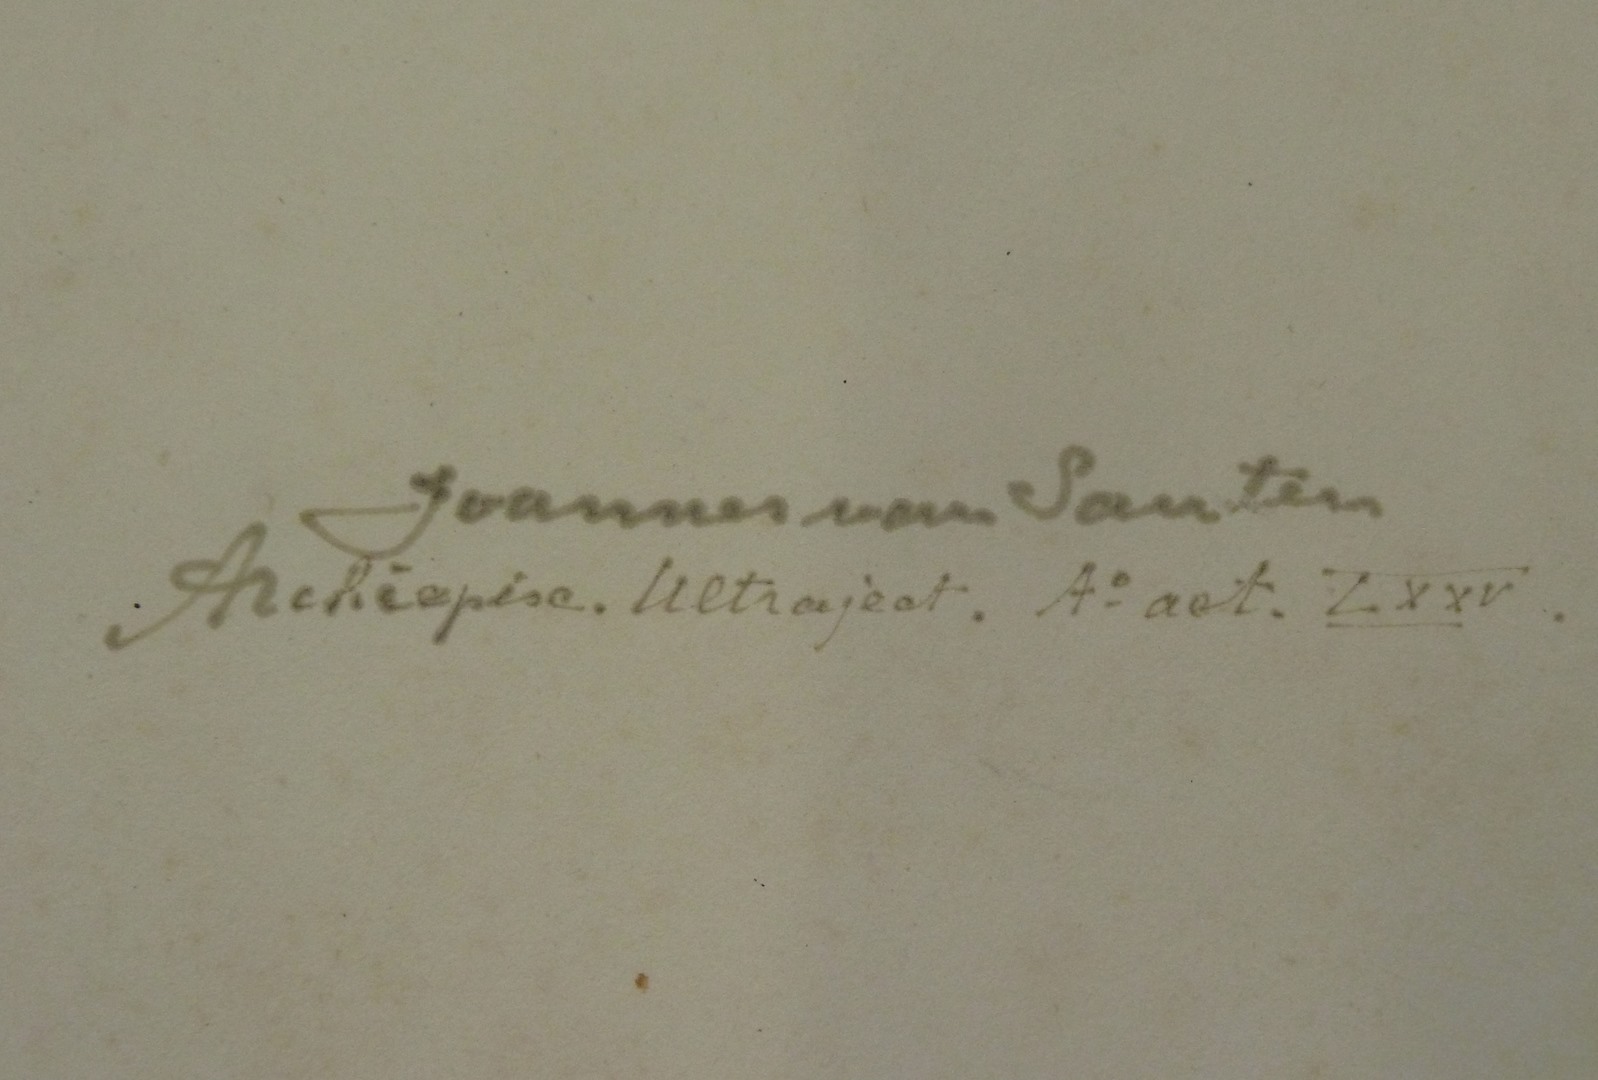 Joannes van Santen
Archiepisc. Ultraject. Aº aet. LXXV.